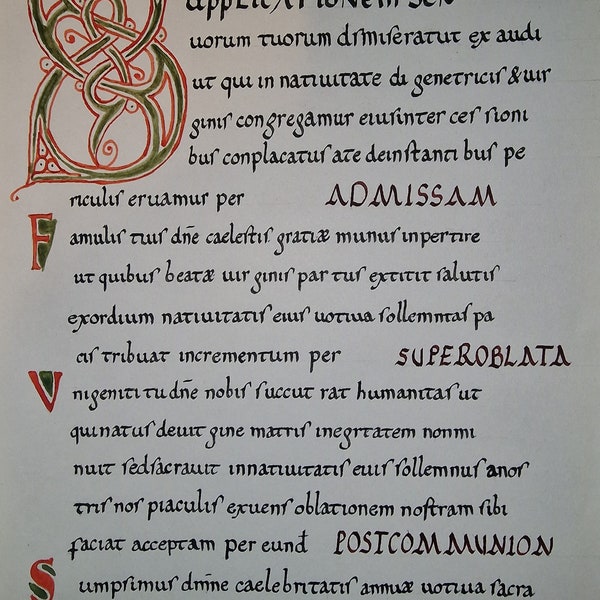 SUPPLICATIONEM SER
uorum tuorum ds miseratut ex audi
ut qui in natiuitate di genetricis & uir
ginis congregamur eiusinter ces sioni
bus conplacatus ate deinstanti bus pe
riculis eruamur per ADMISSAM
Famulis tuis dñe caelestis gratiæ munus inpertire
ut quibus beatæ uir ginis par tus extitit salutis
exordium natiuitatis eius uotiua sollemnitas pa
cis tribuat incrementum per SUPEROBLATA
Unigeniti tu dñe nobis succut rat humanitas ut
quinatus deuit gine matris inegrtatem nonmi
nuit sedsacrauit innatiuitatis eius sollemnus anos
tris nos piaculis exuens oblationem nostram sibi
faciat acceptam per eund POSTCOMMUNION
Sumpsimus dmne caelebritatis annuæ uotiua sacra